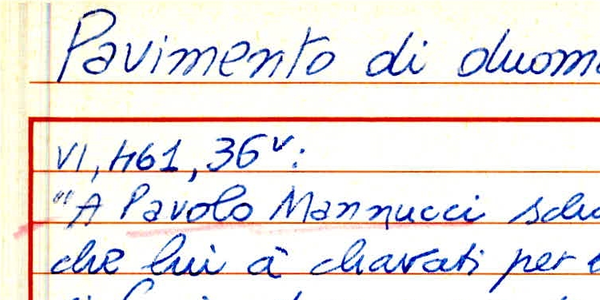 Pavimento di duom
VI, 461, 36v:
"A Pavolo Mannucci
che lui à chavati per